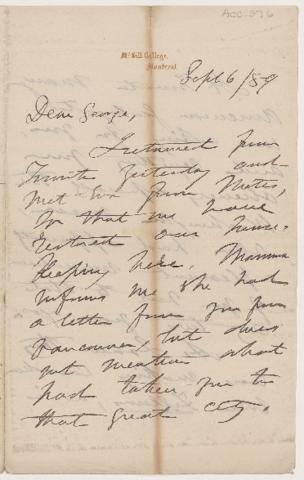 ACC.876
McGill College,
Montreal.
Sept 6/89
Dear George,
I returned from
Toronto yesterday and
met Eva from Metis,
so that we have
restored our house-
keeping here. Mamma
informs me she had
a letter from you from
Vancouver, but does
not mention what
had taken you to
that great city.